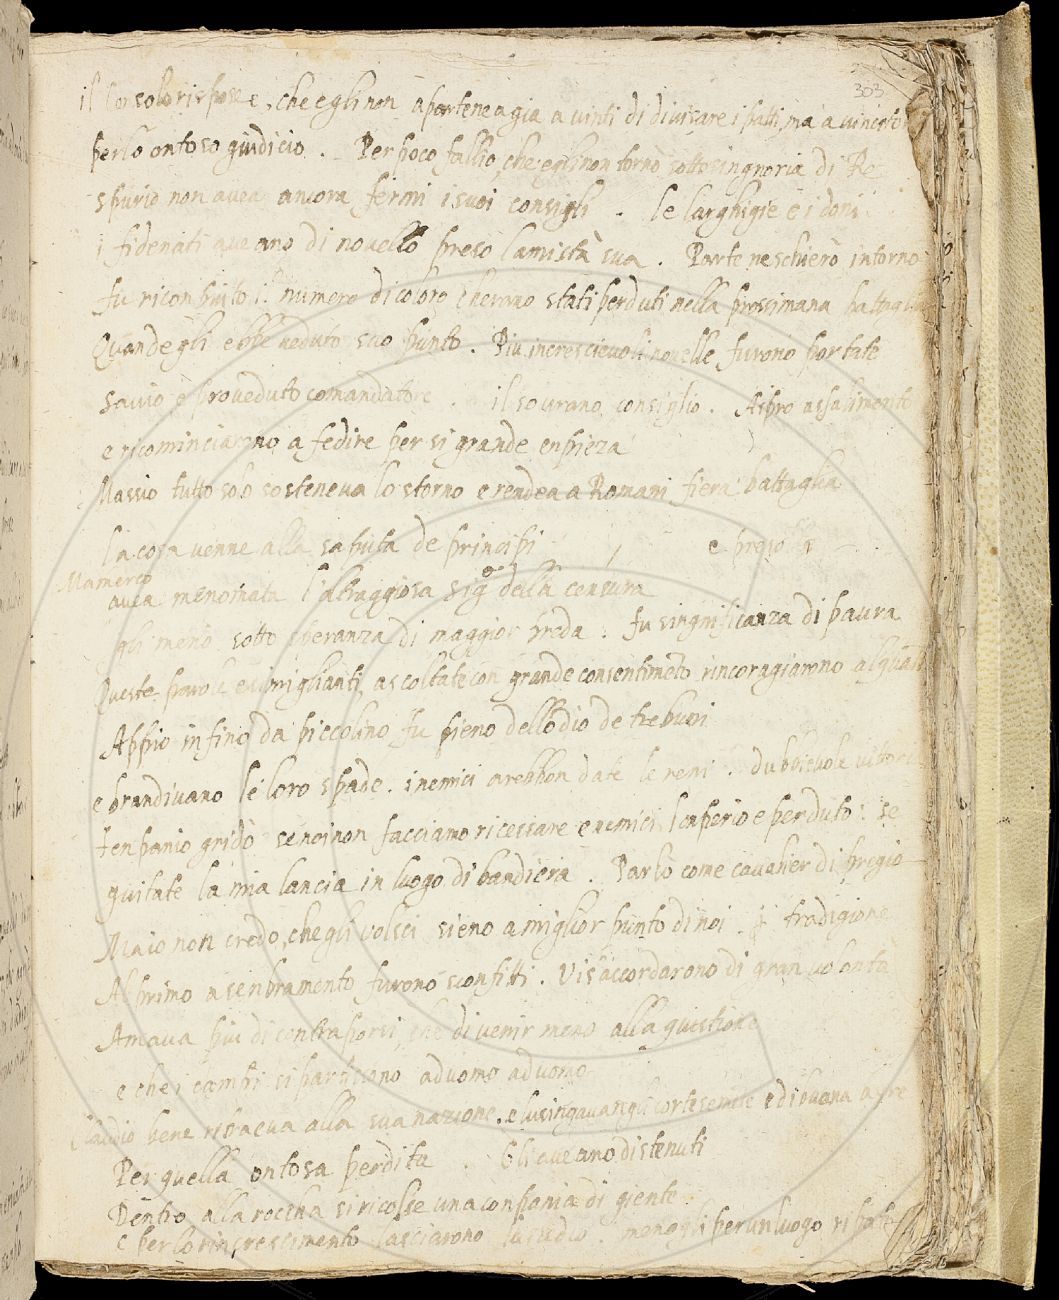 303
il Consolo rispose e, che egli non apartenea gia a vinti di divisare i patti, ma a vincitor
per lo ontoso giudicio. Per poco fallio, che egli non tornò sotto singnoria di Re
spurio non avea ancora fermi i suoi consigli. le larghigie e i doni
i fidenati aveano di novello preso lamistà sua. Parte ne schierò intorno
fu rionpiuto il numero di coloro cherano stati perduti nella prossimana battaglia
Quand egli ebbe veduto suo punto. Piu increscievoli novelle furono portate
savio e proveduto comandatore. il sovrano consiglio. Aspro assalimento
e ricominciarono a fedire per si grande enpieza
Massio tutto solo sosteneva lo stormo e rendea a Romani fiera battaglia
la cosa venne alla saputa de principi e preso
Mamerco
avea menomata l'oltraggiosa sigᵃ della censura
gli menò sotto speranza di maggior preda. fu singnificanza di paura
Queste parole e simiglianti ascoltate con grande consentimeto rincoragiarono
Appio infino da piccolino fu pieno dell odio de trebuni
e brandivano le loro spade. i nemici arebbon date le reni. dubbievole vittoria
Tenpanio gridò se noi non facciamo ricessare e nemici l enperio e perduto: se
guitate la mia lancia in luogo di bandiera. Parlò come cavalier di pregio
Ma io non credo, che gli volsci sieno a miglior punto di noi. tradigione
Al primo asenbramento furono sconfitti. Vis accordarono di gran volontà
Amava piu di contraporsi, che di venir meno alla questione
e che i campi si partissono ad uomo ad uomo
Claudio bene ritraeva alla sua nazione. e lusingavangli cortesemente e di buona aire
Per quella ontosa perdita. Gli aveano distenuti
Dentro alla roccha si ricolse una conpania di giente
e per lo rincrescimento lasciarono per un luogo